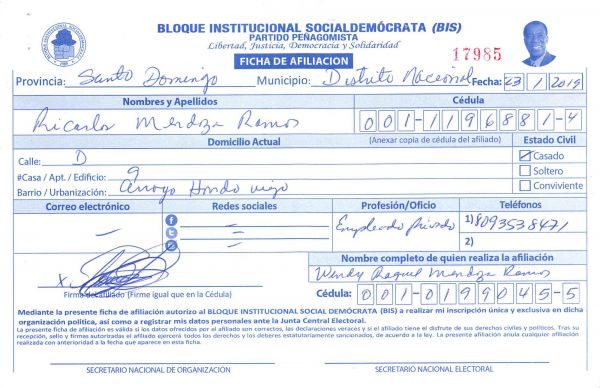 BLOQUE INSTITUCIONAL SOCIALDEMÓCRATA (BIS)
PARTIDO PEÑAGOMISTA
Libertad, Justicia, Democracia y Solidaridad
FICHA DE AFILIACION
17985
Provincia: Santo Domingo Municipio: Distrito Nacional Fecha: 23/1/2019
Nombres y Apellidos Cédula
Ricarlos Mendoza Ramos 001-1196881-4
Domicilio Actual (Anexar copia de cédula del afiliado) Estado Civil
Calle: D Casado
#Casa / Apt. / Edificio: 9 Soltero
Barrio / Urbanización: Arroyo Hondo viejo Conviviente
Correo electrónico Redes sociales Profesión/Oficio Teléfonos
Empleado privado 1) 8093538471
2)
Nombre completo de quien realiza la afiliación
Wendy Raquel Mendoza Ramos
Firma del afiliado (Firme igual que en la Cédula) Cédula: 001-0199045-5
Mediante la presente ficha de afiliación autorizo al BLOQUE INSTITUCIONAL SOCIAL DEMÓCRATA (BIS) a realizar mi inscripción única y exclusiva en dicha
organización política, así como a registrar mis datos personales ante la Junta Central Electoral.
La presente ficha de afiliación es válida si los datos ofrecidos por el afiliado son correctos, las declaraciones veraces y si el afiliado tiene el disfrute de sus derechos civiles y políticos. Tras su
recepción, sello y firmas autorizadas el afiliado ejercerá todos los derechos y los deberes estatutariamente sancionados, de acuerdo a la ley. La presente afiliación anula cualquier afiliación
realizada con anterioridad a la fecha que aparece en esta ficha.
SECRETARIO NACIONAL DE ORGANIZACIÓN SECRETARIO NACIONAL ELECTORAL